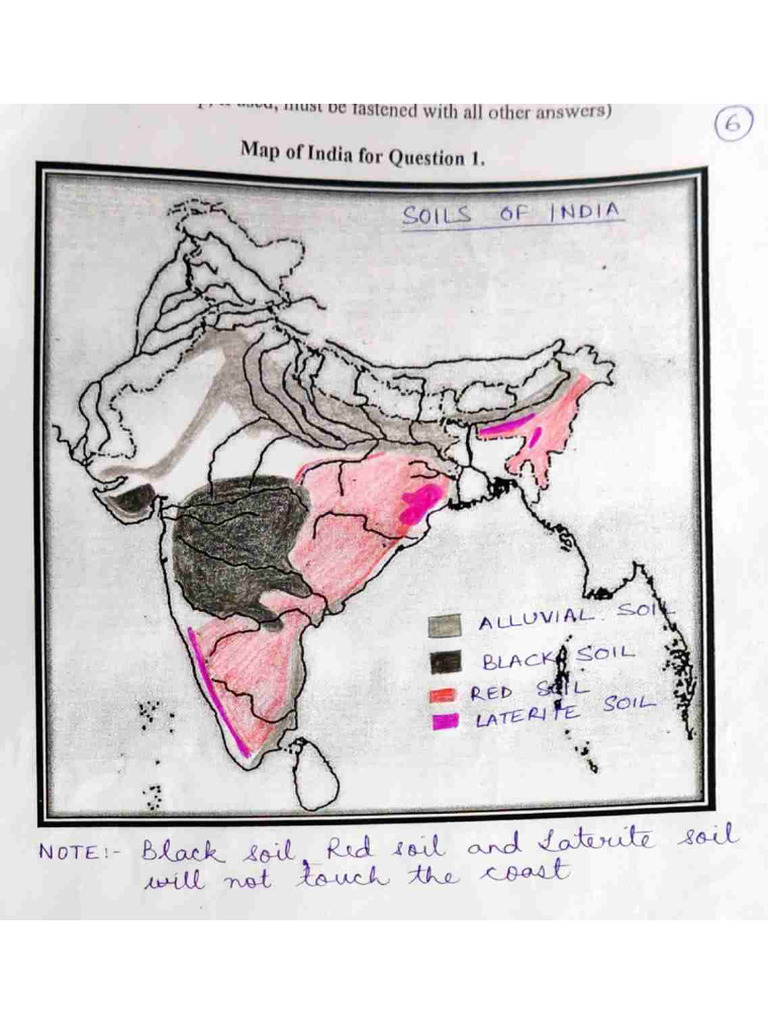 must be fastened with all other answers)
6
Map of India for Question 1.
SOILS OF INDIA
ALLUVIAL SOIL
BLACK SOIL
RED SOIL
LATERITE SOIL
NOTE:- Black soil, Red soil and Laterite soil
will not touch the coast